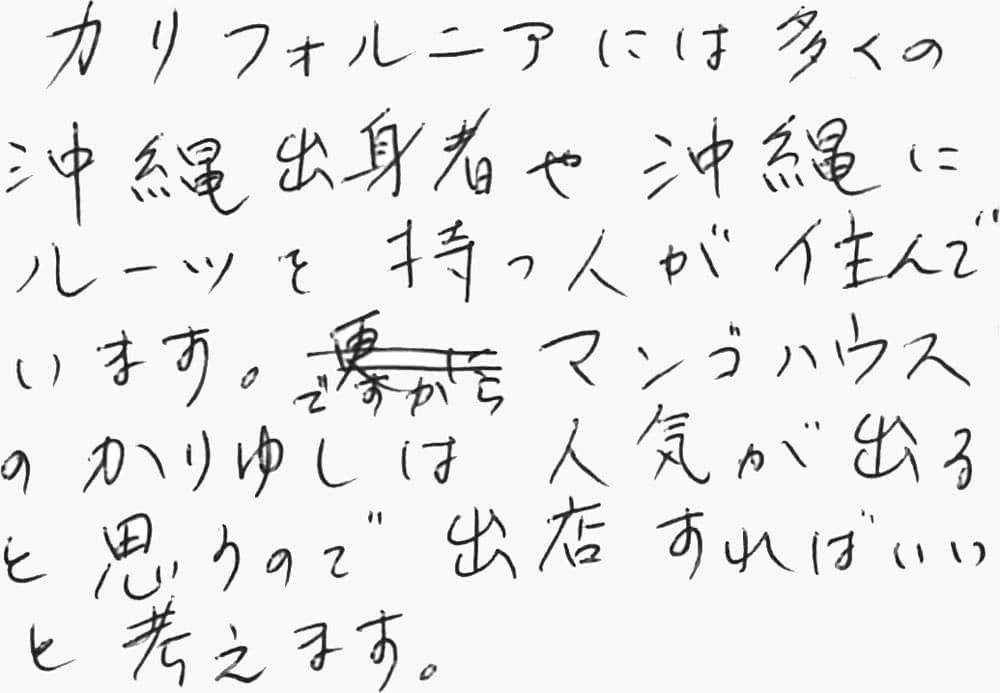 カリフォルニアには多くの
沖縄出身者や沖縄に
ルーツを持つ人が住んで
います。ですからマンゴハウス
のかりゆしは人気が出る
と思うので出店すればいい
と考えます。